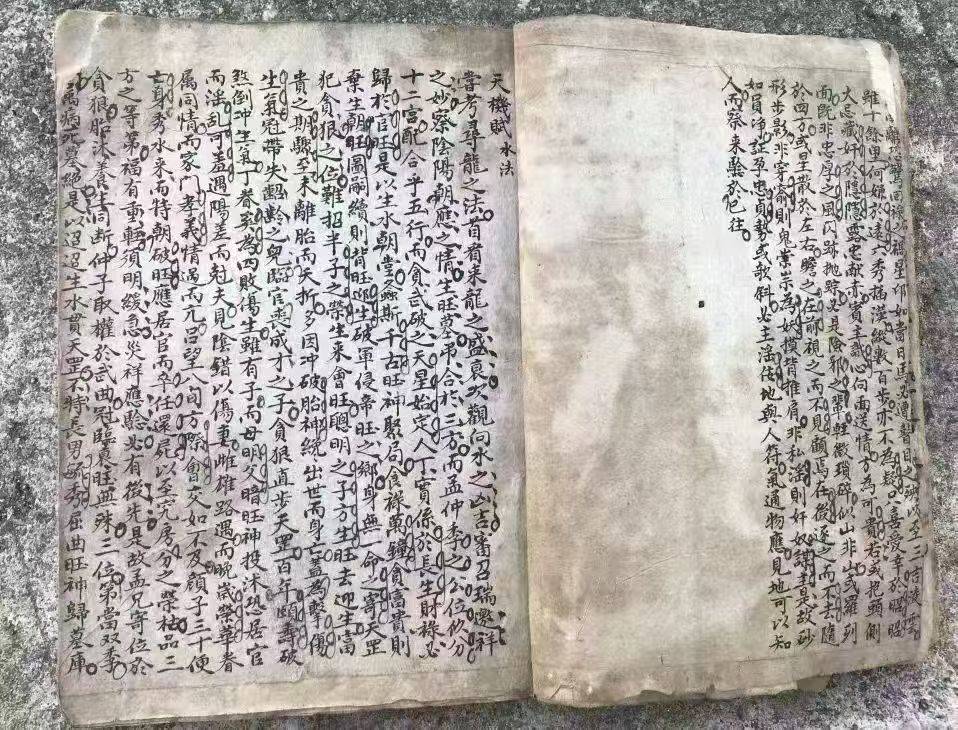 雖十餘里何緣於遠六秀搖漢縱數百步亦不為
大忌藏奸於隱隱處宅献青貴主誠心向面送情方為可貴若或把頭側
面既非忠厚之風闪跡抛踪必是陰邪之輩輕微瑣碎似山非山或羅列
於四方或星散於左右瞻之在前視之而不見顧焉在後逐之而不去隨
形步影非穿窬則鬼祟祟為妖摸背推肩非私溫則奸奴隸是故砂
如員净註孕忠貞勢或歌斜必主淫佚地與人符氣通物應見地可以知
人而察来驗於已往
天機賦 水法
嘗考尋龍之法首看来龍之盛衰次觀向水之凶吉審召瑞邀祥
之妙察陰陽朝應之情生旺墓吊合於三方而孟仲季之公位攸分
十二宫配合乎五行而貪武破之天星始定人丁實係於長生財禄必
歸於官旺是以生水朝堂螽斯千古旺神聚局食禄萬鐘貪富貴則
棄生朝旺圖嗣續則背旺迎生破軍侵帝旺之鄉身無一命之寄天罡
犯貪狼之位難招半子之榮生来會旺聰明之子方生旺去迎生富
貴之期驟至未離胎而夭折多因冲破胎神統出世而身亡蓋為擊傷
生氣冠帶失齠齡之兒臨官喪成才之子貪狼直步天罡百年傾壽破
煞倒冲生氣丁眷奚為四敗傷生雖有子而母明父暗旺神投沐恐居官
而淫乱可羞遇陽差而尅夫見陰錯以傷妻雌雄路遇而晚歲榮華眷
属同情而家門孝義情過而亢呂望八旬方際會交如不及顏子三十便
亡身秀水来而特朝破旺應居官而卒任還屍以至究房分之榮枯品三
方之等第福有重輕須明緩急災祥應驗必有後先是故孟兄等位於
貪狼胎沐養生同斷仲子取權於武曲冠臨衰旺無殊三位第當双季
病死墓絕是以迢迢生水貫天罡不時長男毓秀屈曲旺神歸墓庫